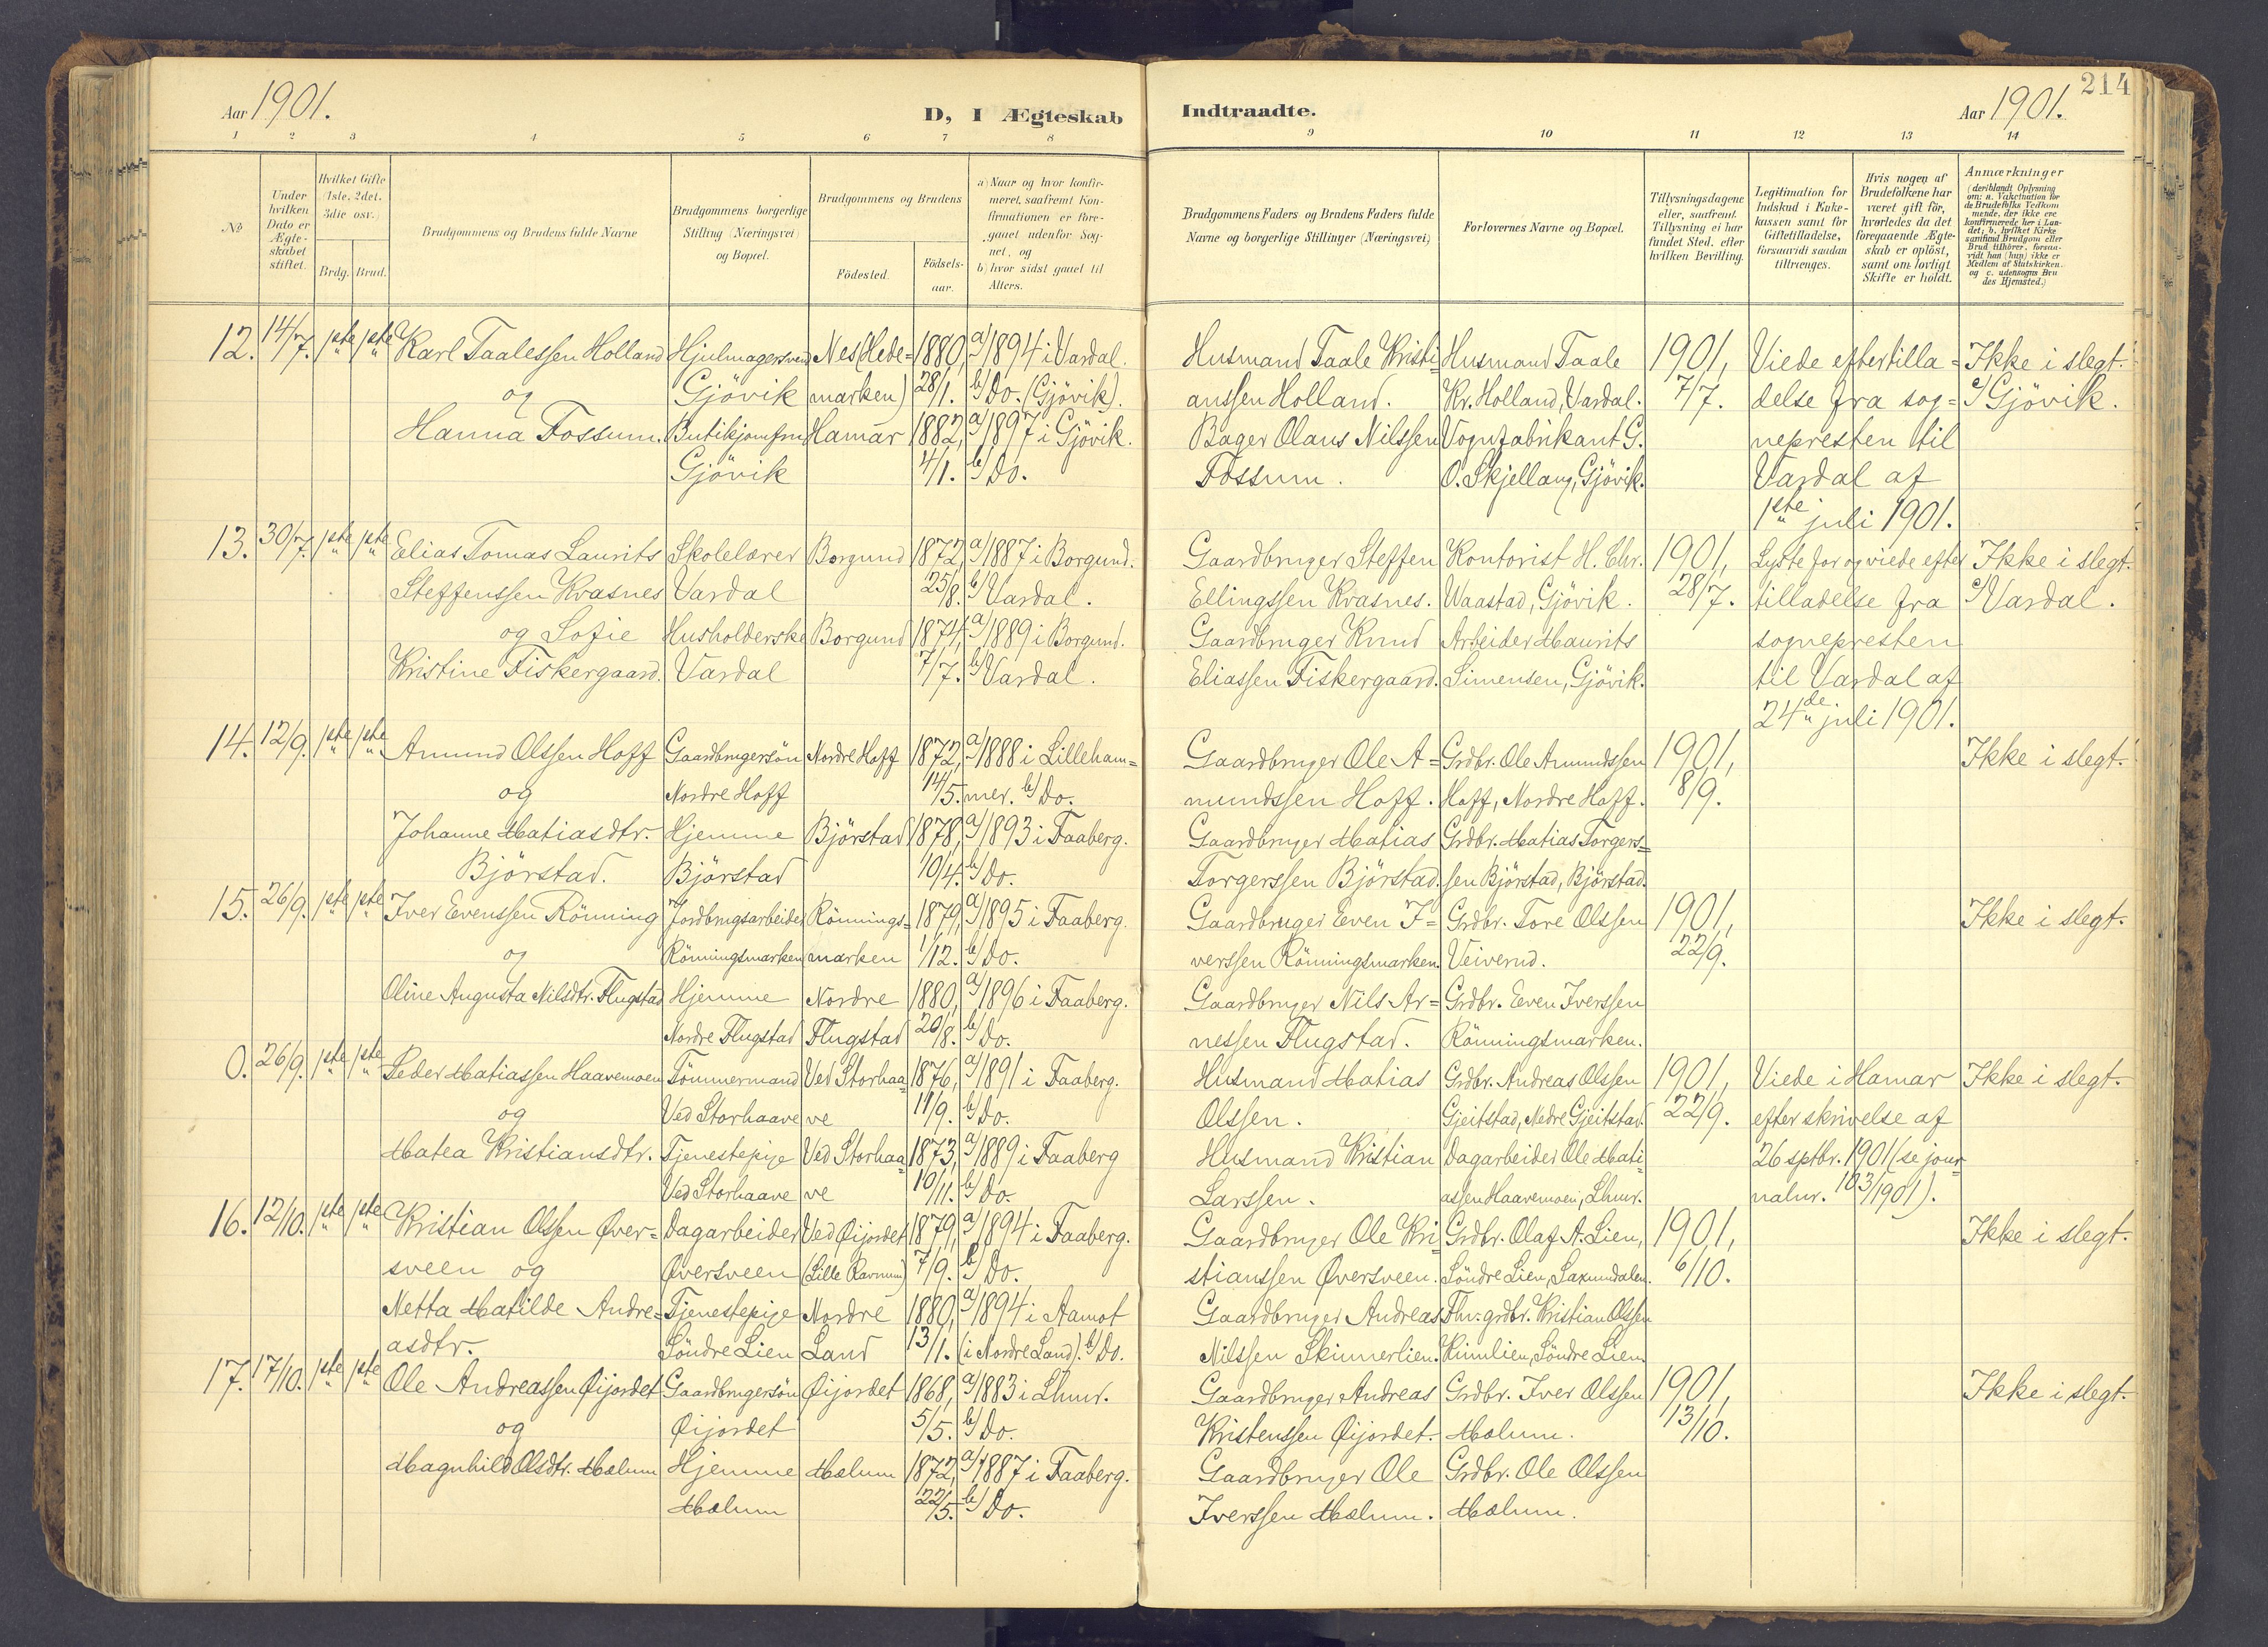 214
Aar 1901.
D, I Ægteskab
Indtraadte.
Aar 1901.
1 2 3 4 5 6 7 8 9 10 11 12 13 14
No
Under hvilken Dato er Ægteskabet stiftet.
Hvilket Gifte (1ste, 2det, 3die osv.)
Brdg. Brud.
Brudgommens og Brudens fulde Navne
Brudgommens borgerlige Stilling (Næringsvei) og Bopæl.
Brudgommens og Brudens
Födested.
Födselsaar.
a) Naar og hvor konfirmeret, saafremt Konfirmationen er foregaaet udenfor Sognet, og
b) hvor sidst gaaet til Alters.
Brudgommens Faders og Brudens Faders fulde Navne og borgerlige Stillinger (Næringsvei)
Forlovernes Navne og Bopæl.
Tillysningsdagene eller, saafremt Tillysning ei har fundet Sted, efter hvilken Bevilling.
Legitimation for Indskud i Enkekassen samt for Giftetilladelse, forsaavidt saadan tiltrænges.
Hvis nogen af Brudefolkene har været gift för, hvorledes da det foregaaende Ægteskab er oplöst, samt om lovligt Skifte er holdt.
Anmærkninger (deriblandt Oplysning om: a. Vakcination for de Brudefolks Vedkommende, der ikke ere konfirmerede her i Landet; b. hvilket Kirkesamfund Brudgom eller Brud tilhörer, forsaavidt han (hun) ikke er Medlem af Statskirken, og c. udensogns Brudes Hjemsted.)
12. 14/7. 1ste 1ste Karl Taalessen Holland Hjulmagersvend Nes (Hede= 1880, a/1894 i Vardal. Husmand Taale Kristi= Husmand Taale 1901, Viede efter tilla= Ikke i slegt.
og Gjövik marken) 28/1. b/ Do. (Gjövik). anssen Holland. Kr. Holland, Vardal. 7/7. delse fra sog= c/ Gjövik.
Hanna Fossum. Butikjomfru Hamar 1882, a/1897 i Gjövik. Bager Olaus Nilssen Vognfabrikant G. nepresten til
Gjövik 4/1. b/ Do. Fossum. O. Skjellaug, Gjövik. Vardal af
1ste juli 1901.
13. 30/7. 1ste 1ste Elias Tomas Laurits Skolelærer Borgund 1872, a/1887 i Borgund. Gaardbruger Steffen Kontorist H. Chr. 1901, Lyste for og viede efter Ikke i slegt.
Steffenssen Kvasnes Vardal 25/8. b/ Vardal. Ellingssen Kvasnes. Waastad, Gjövik. 28/7. tilladelse fra c/ Vardal.
og Sofie Husholderske Borgund 1874, a/1889 i Borgund. Gaardbruger Knud Arbeider Maurits sognepresten
Kristine Fiskergaard. Vardal 7/7. b/ Vardal. Eliassen Fiskergaard. Simensen, Gjövik. til Vardal af
24de juli 1901.
14. 12/9. 1ste 1ste Amund Olssen Hoff Gaardbrugersön Nordre Hoff 1872, a/1888 i Lilleham= Gaardbruger Ole A= Grdbr. Ole Amundssen 1901, Ikke i slegt.
og Nordre Hoff 14/5. mer. b/ Do. mundssen Hoff. Hoff, Nordre Hoff. 8/9.
Johanne Matiasdtr. Hjemme Björstad 1878, a/1893 i Faaberg. Gaardbruger Matias Grdbr. Matias Torgers=
Björstad. Björstad 10/4. b/ Do. Torgerssen Björstad. sen Björstad, Björstad.
15. 26/9. 1ste 1ste Iver Evenssen Rönning Jordbrugsarbeider Rönnings= 1879, a/1895 i Faaberg. Gaardbruger Even I= Grdbr. Tore Olssen 1901, Ikke i slegt.
og Rönningsmarken marken 1/12. b/ Do. verssen Rönningsmarken. Veiverud. 22/9.
Oline Augusta Nilsdtr. Flugstad Hjemme Nordre 1880, a/1896 i Faaberg. Gaardbruger Nils Ar= Grdbr. Even Iverssen
Nordre Flugstad Flugstad 20/8. b/ Do. nessen Flugstad. Rönningsmarken.
0. 26/9. 1ste 1ste Peder Matiassen Haavemoen Tömmermand Ved Storhaa= 1876, a/1891 i Faaberg. Husmand Matias Grdbr. Andreas Olssen 1901, Viede i Hamar Ikke i slegt.
og Ved Storhaave ve 11/9. b/ Do. Olssen. Gjeitstad, Nedre Gjeitstad. 22/9. efter skrivelse af
Matea Kristiansdtr. Tjenestepige Ved Storhaa= 1873, a/1889 i Faaberg Husmand Kristian Dagarbeider Ole Mati= 26 sptbr. 1901 (se jour=
Ved Storhaave ve 10/11. b/ Do. Larssen. assen Haavemoen, Lhmr. nalnr. 103/1901).
16. 12/10. 1ste 1ste Kristian Olssen Över= Dagarbeider Ved Øijordet 1879, a/1894 i Faaberg. Gaardbruger Ole Kri= Grdbr. Olaf A. Lien, 1901, Ikke i slegt.
sveen og Øversveen (Lille Ravnum) 7/9. b/ Do. stianssen Øversveen. Söndre Lien, Saxumdalen. 6/10.
Netta Matilde Andre= Tjenestepige Nordre 1880, a/1894 i Aamot Gaardbruger Andreas Fhv. grdbr. Kristian Olssen
asdtr. Söndre Lien Land 13/11. (i Nordre Land). b/ Do. Nilssen Skinnerlien. Kinnlien, Söndre Lien.
17. 17/10. 1ste 1ste Ole Andreassen Øijordet Gaardbrugersön Øijordet 1868, a/1883 i Lhmr. Gaardbruger Andreas Grdbr. Iver Olssen 1901, Ikke i slegt.
og Øijordet 5/5. b/ Do. Kristenssen Øijordet. Mælum. 13/10.
Magnhild Olsdtr. Mælum Hjemme Mælum 1872, a/1887 i Faaberg. Gaardbruger Ole Grdbr. Ole Olssen
Mælum 22/5. b/ Do. Iverssen Mælum. Mælum.